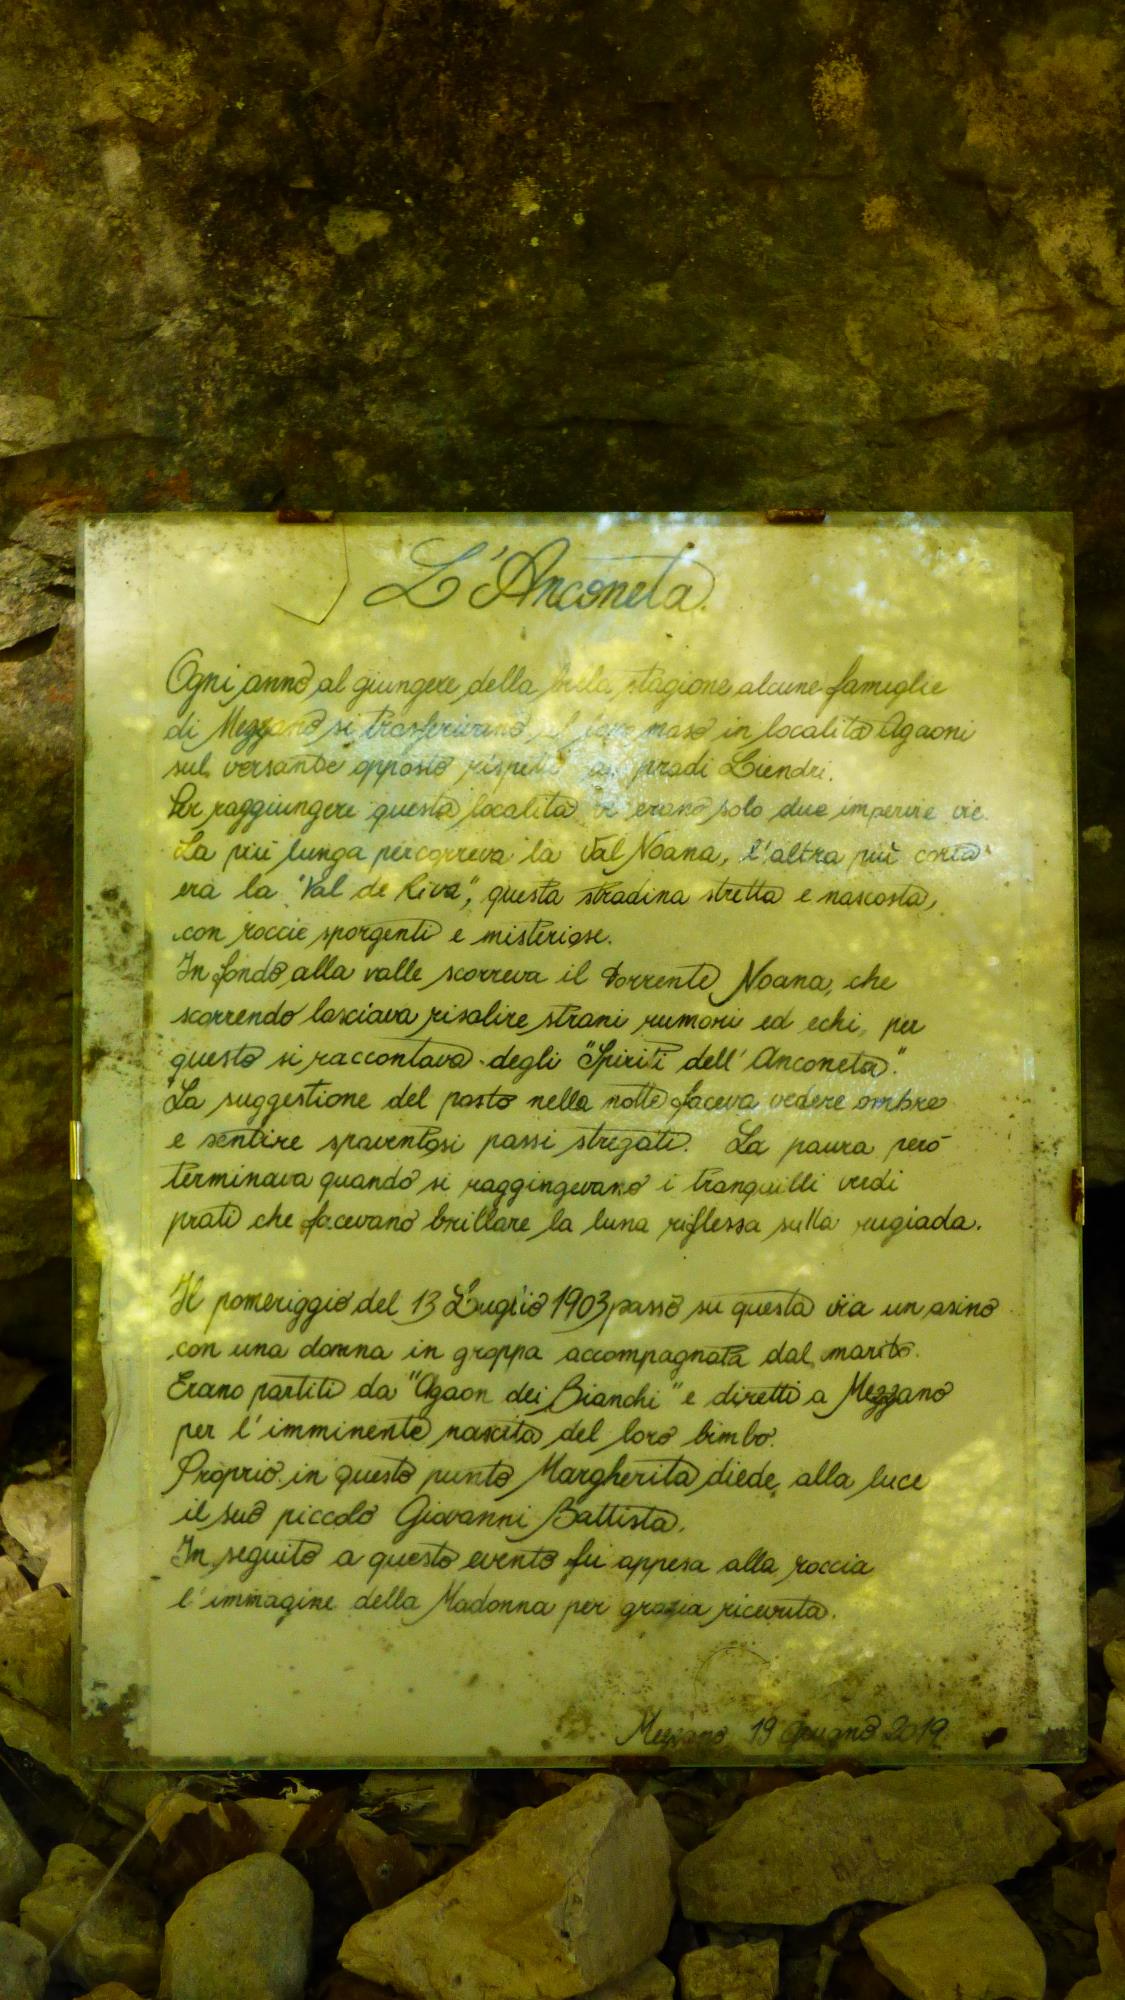 L'Anconeta.
Ogni anno al giungere della bella stagione alcune famiglie
di Mezzano si trasferivano al loro maso in località Agaoni
sul versante opposto rispetto ai pradi Liendri.
Per raggiungere questa località vi erano solo due impervie vie.
La più lunga percorreva la Val Noana, l'altra più corta
era la "Val de Riva", questa stradina stretta e nascosta,
con roccie sporgenti e misteriose.
In fondo alla valle scorreva il Torrente Noana, che
scorrendo lasciava risalire strani rumori ed echi, per
questo si raccontava degli "Spiriti dell'Anconeta".
"La suggestione del posto nella notte faceva vedere ombre
e sentire spaventosi passi stregati. La paura però
terminava quando si raggingevano i tranquilli verdi
prati che facevano brillare la luna riflessa sulla rugiada.
Il pomeriggio del 13 Luglio 1903 passò su questa via un asino
con una donna in groppa accompagnata dal marito.
Erano partiti da "Agaon dei Bianchi" e diretti a Mezzano
per l'imminente nascita del loro bimbo.
Proprio in questo punto Margherita diede alla luce
il suo piccolo Giovanni Battista.
In seguito a questo evento fu appesa alla roccia
l'immagine della Madonna per grazia ricevuta.
Mezzano, 19 Giugno 2019